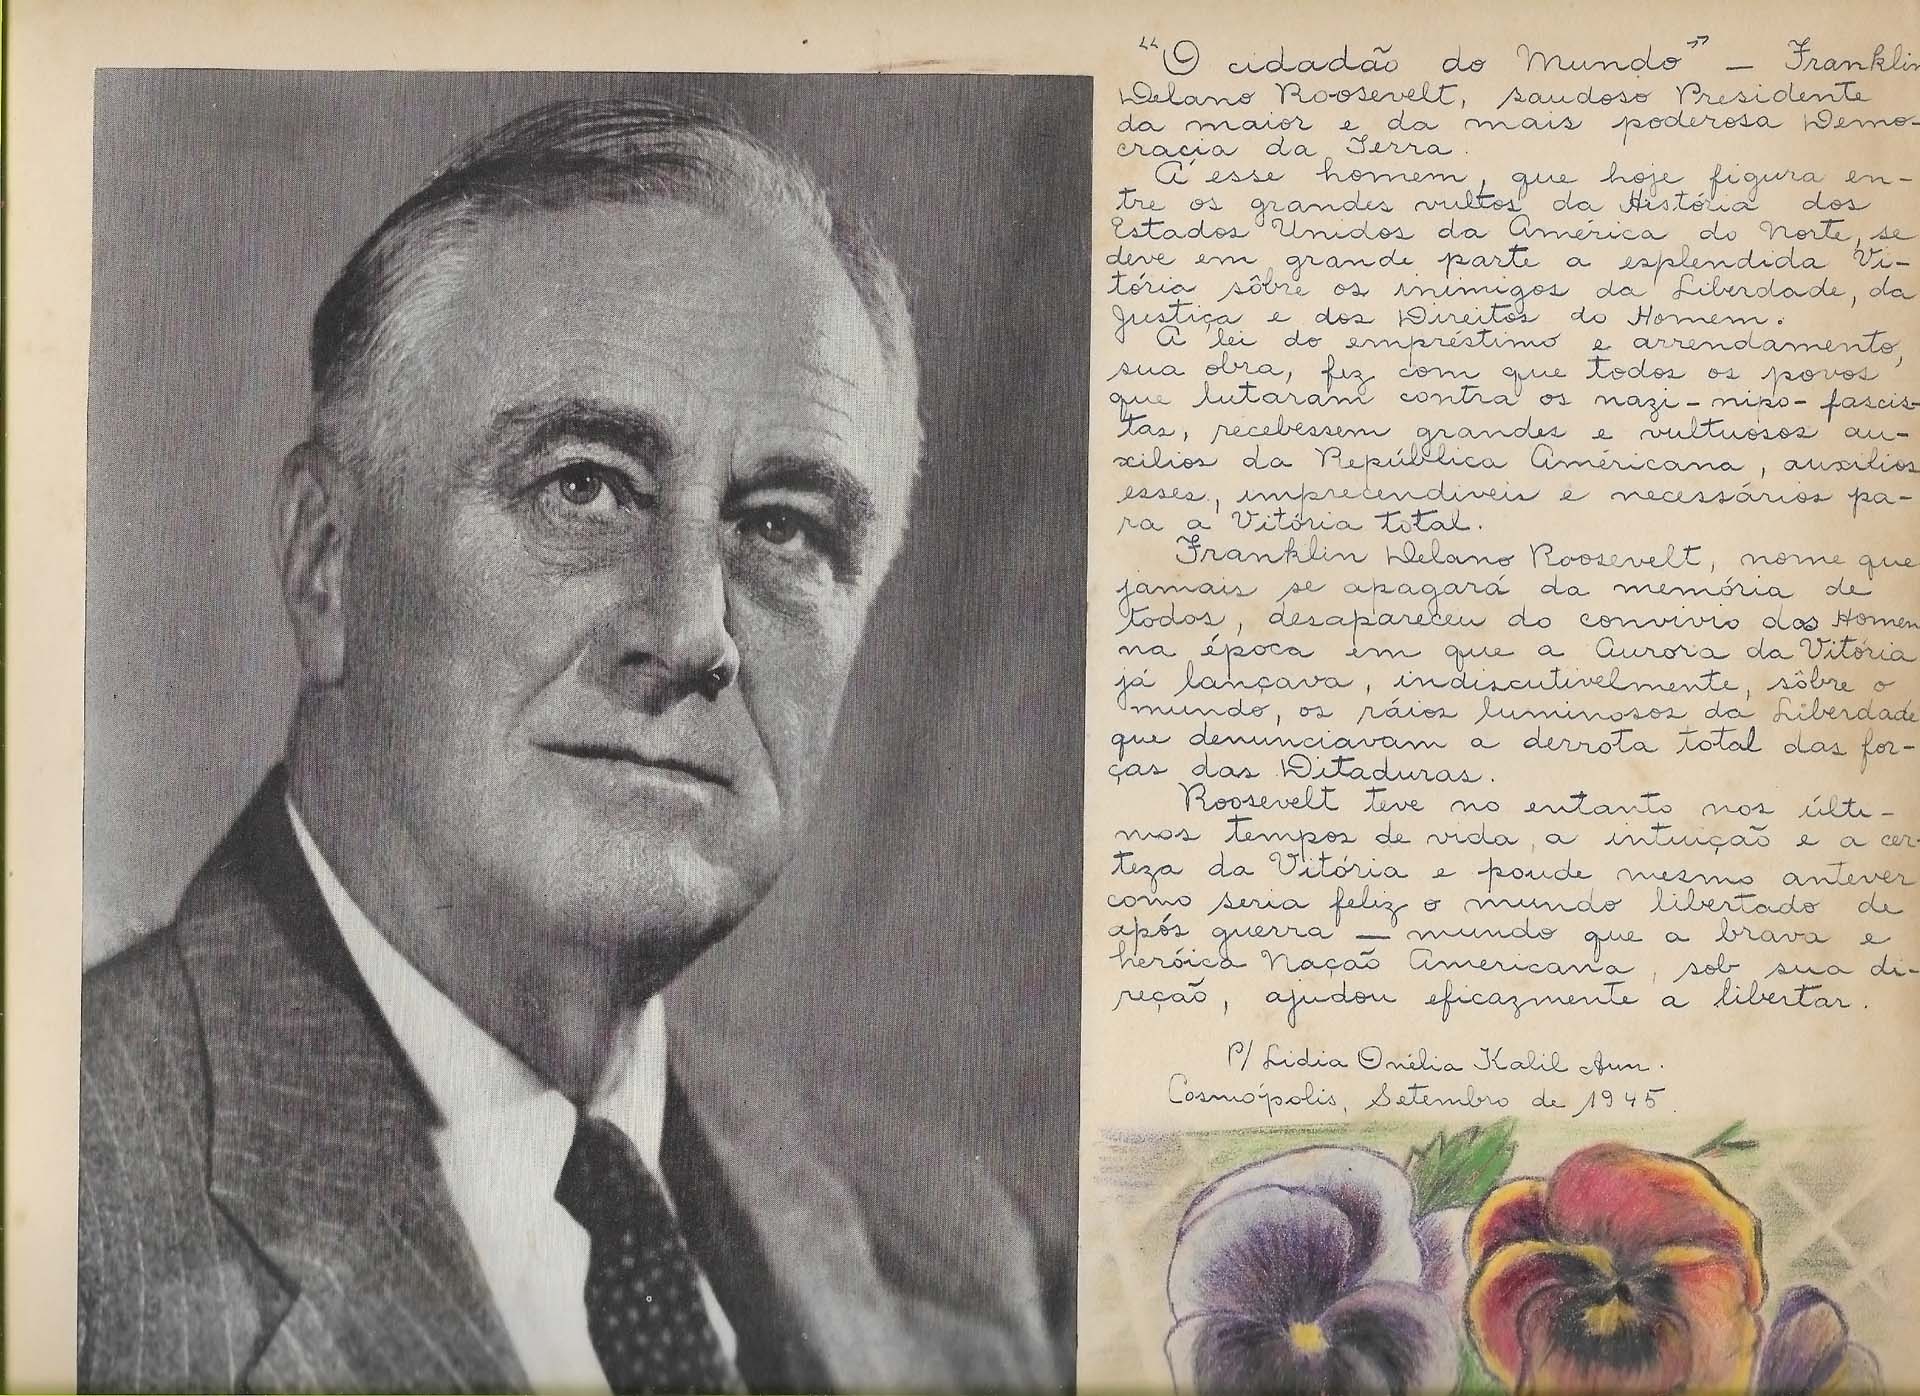 "O cidadão do Mundo" — Franklin
Delano Roosevelt, saudoso Presidente
da maior e da mais poderosa Demo-
cracia da Terra.
Á esse homem, que hoje figura en-
tre os grandes vultos da História dos
Estados Unidos da América do Norte, se
deve em grande parte a esplendida Vi-
tória sôbre os inimigos da Liberdade, da
Justiça e dos Direitos do Homem.
A lei do empréstimo e arrendamento,
sua obra, fez com que todos os povos
que lutaram contra os nazi-nipo-fascis-
tas, recebessem grandes e vultuosos au-
xilios da República Américana, auxilios
esses, imprecendiveis e necessários pa-
ra a Vitória total.
Franklin Delano Roosevelt, nome que
jamais se apagará da memória de
todos, desapareceu do convivio dos Homen
na época em que a Aurora da Vitória
já lançava, indiscutivelmente, sôbre o
mundo, os ráios luminosos da Liberdade
que denunciavam a derrota total das for-
ças das Ditaduras.
Roosevelt teve no entanto nos últi-
mos tempos de vida, a intuição e a cer-
teza da Vitória e poude mesmo antever
como seria feliz o mundo libertado de
após guerra — mundo que a brava e
heróica Nação Americana, sob sua di-
reção, ajudou eficazmente a libertar.
P/ Lidia Onélia Kalil Aun.
Cosmópolis, Setembro de 1945.